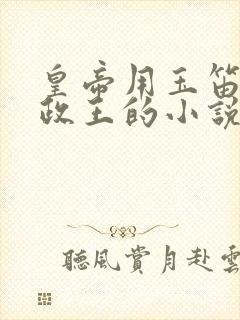 皇帝用玉笛
政王的小說
聽風賞月赴雲